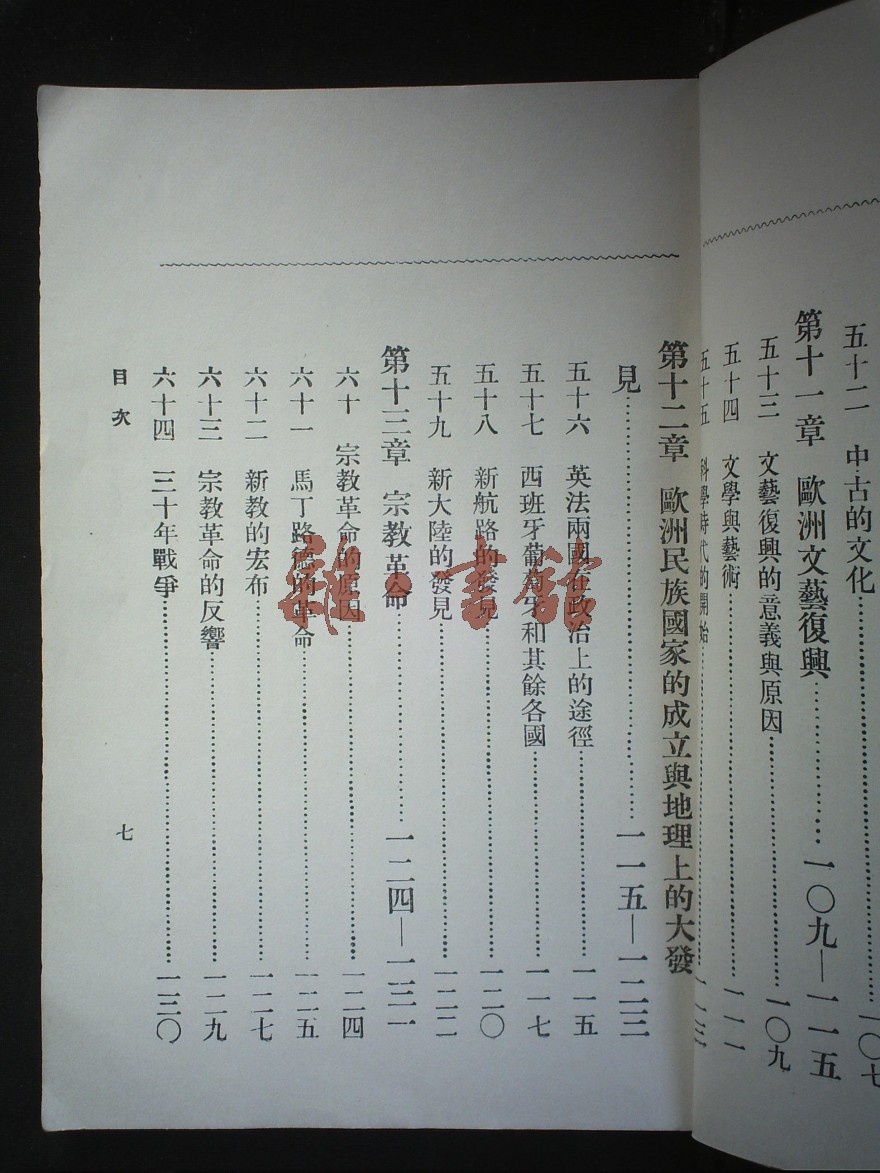 五十二 中古的文化……一〇七
第十一章 歐洲文藝復興……一〇九—一一五
五十三 文藝復興的意義與原因……一〇九
五十四 文學與藝術……一一一
五十五 科學時代的開始……一一三
第十二章 歐洲民族國家的成立與地理上的大發
見……一一五—一二三
五十六 英法兩國在政治上的途徑……一一五
五十七 西班牙葡萄牙和其餘各國……一一七
五十八 新航路的發見……一二〇
五十九 新大陸的發見……一二二
第十三章 宗教革命……一二四—一三一
六十 宗教革命的原因……一二四
六十一 馬丁路德的革命……一二五
六十二 新教的宏布……一二七
六十三 宗教革命的反響……一二九
六十四 三十年戰爭……一三〇
目次
七
雜·書館